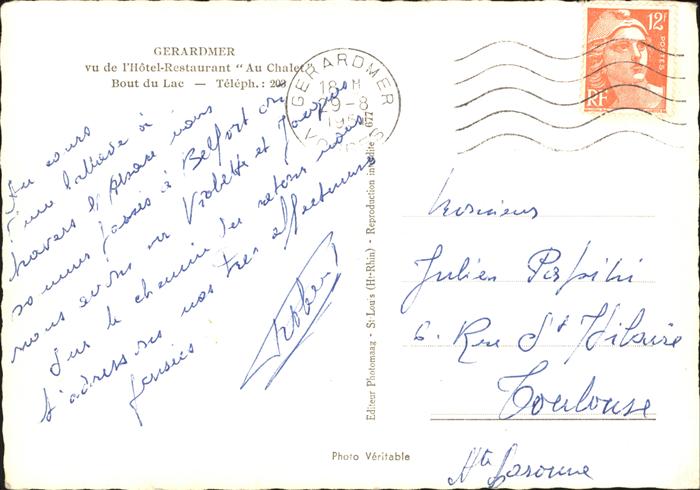 GERARDMER
vu de l'Hôtel-Restaurant "Au Chalet"
Bout du Lac — Téléph.: 203
Au cours
d'une ballade à
travers l'Alsace nous
sommes passés à Belfort où
nous avons vu Violette et Jacques
Sur le chemin du retour nous
t'adressons nos très affectueuses
pensées
Robert
GERARDMER
18 H
29-8
VOSGES
12F
POSTES
RF
Editeur Photomaag - St Louis (Ht-Rhin) - Reproduction interdite 677
Monsieur
Julien Papitri
6. Rue St Hilaire
Toulouse
Hte Garonne
Photo Véritable